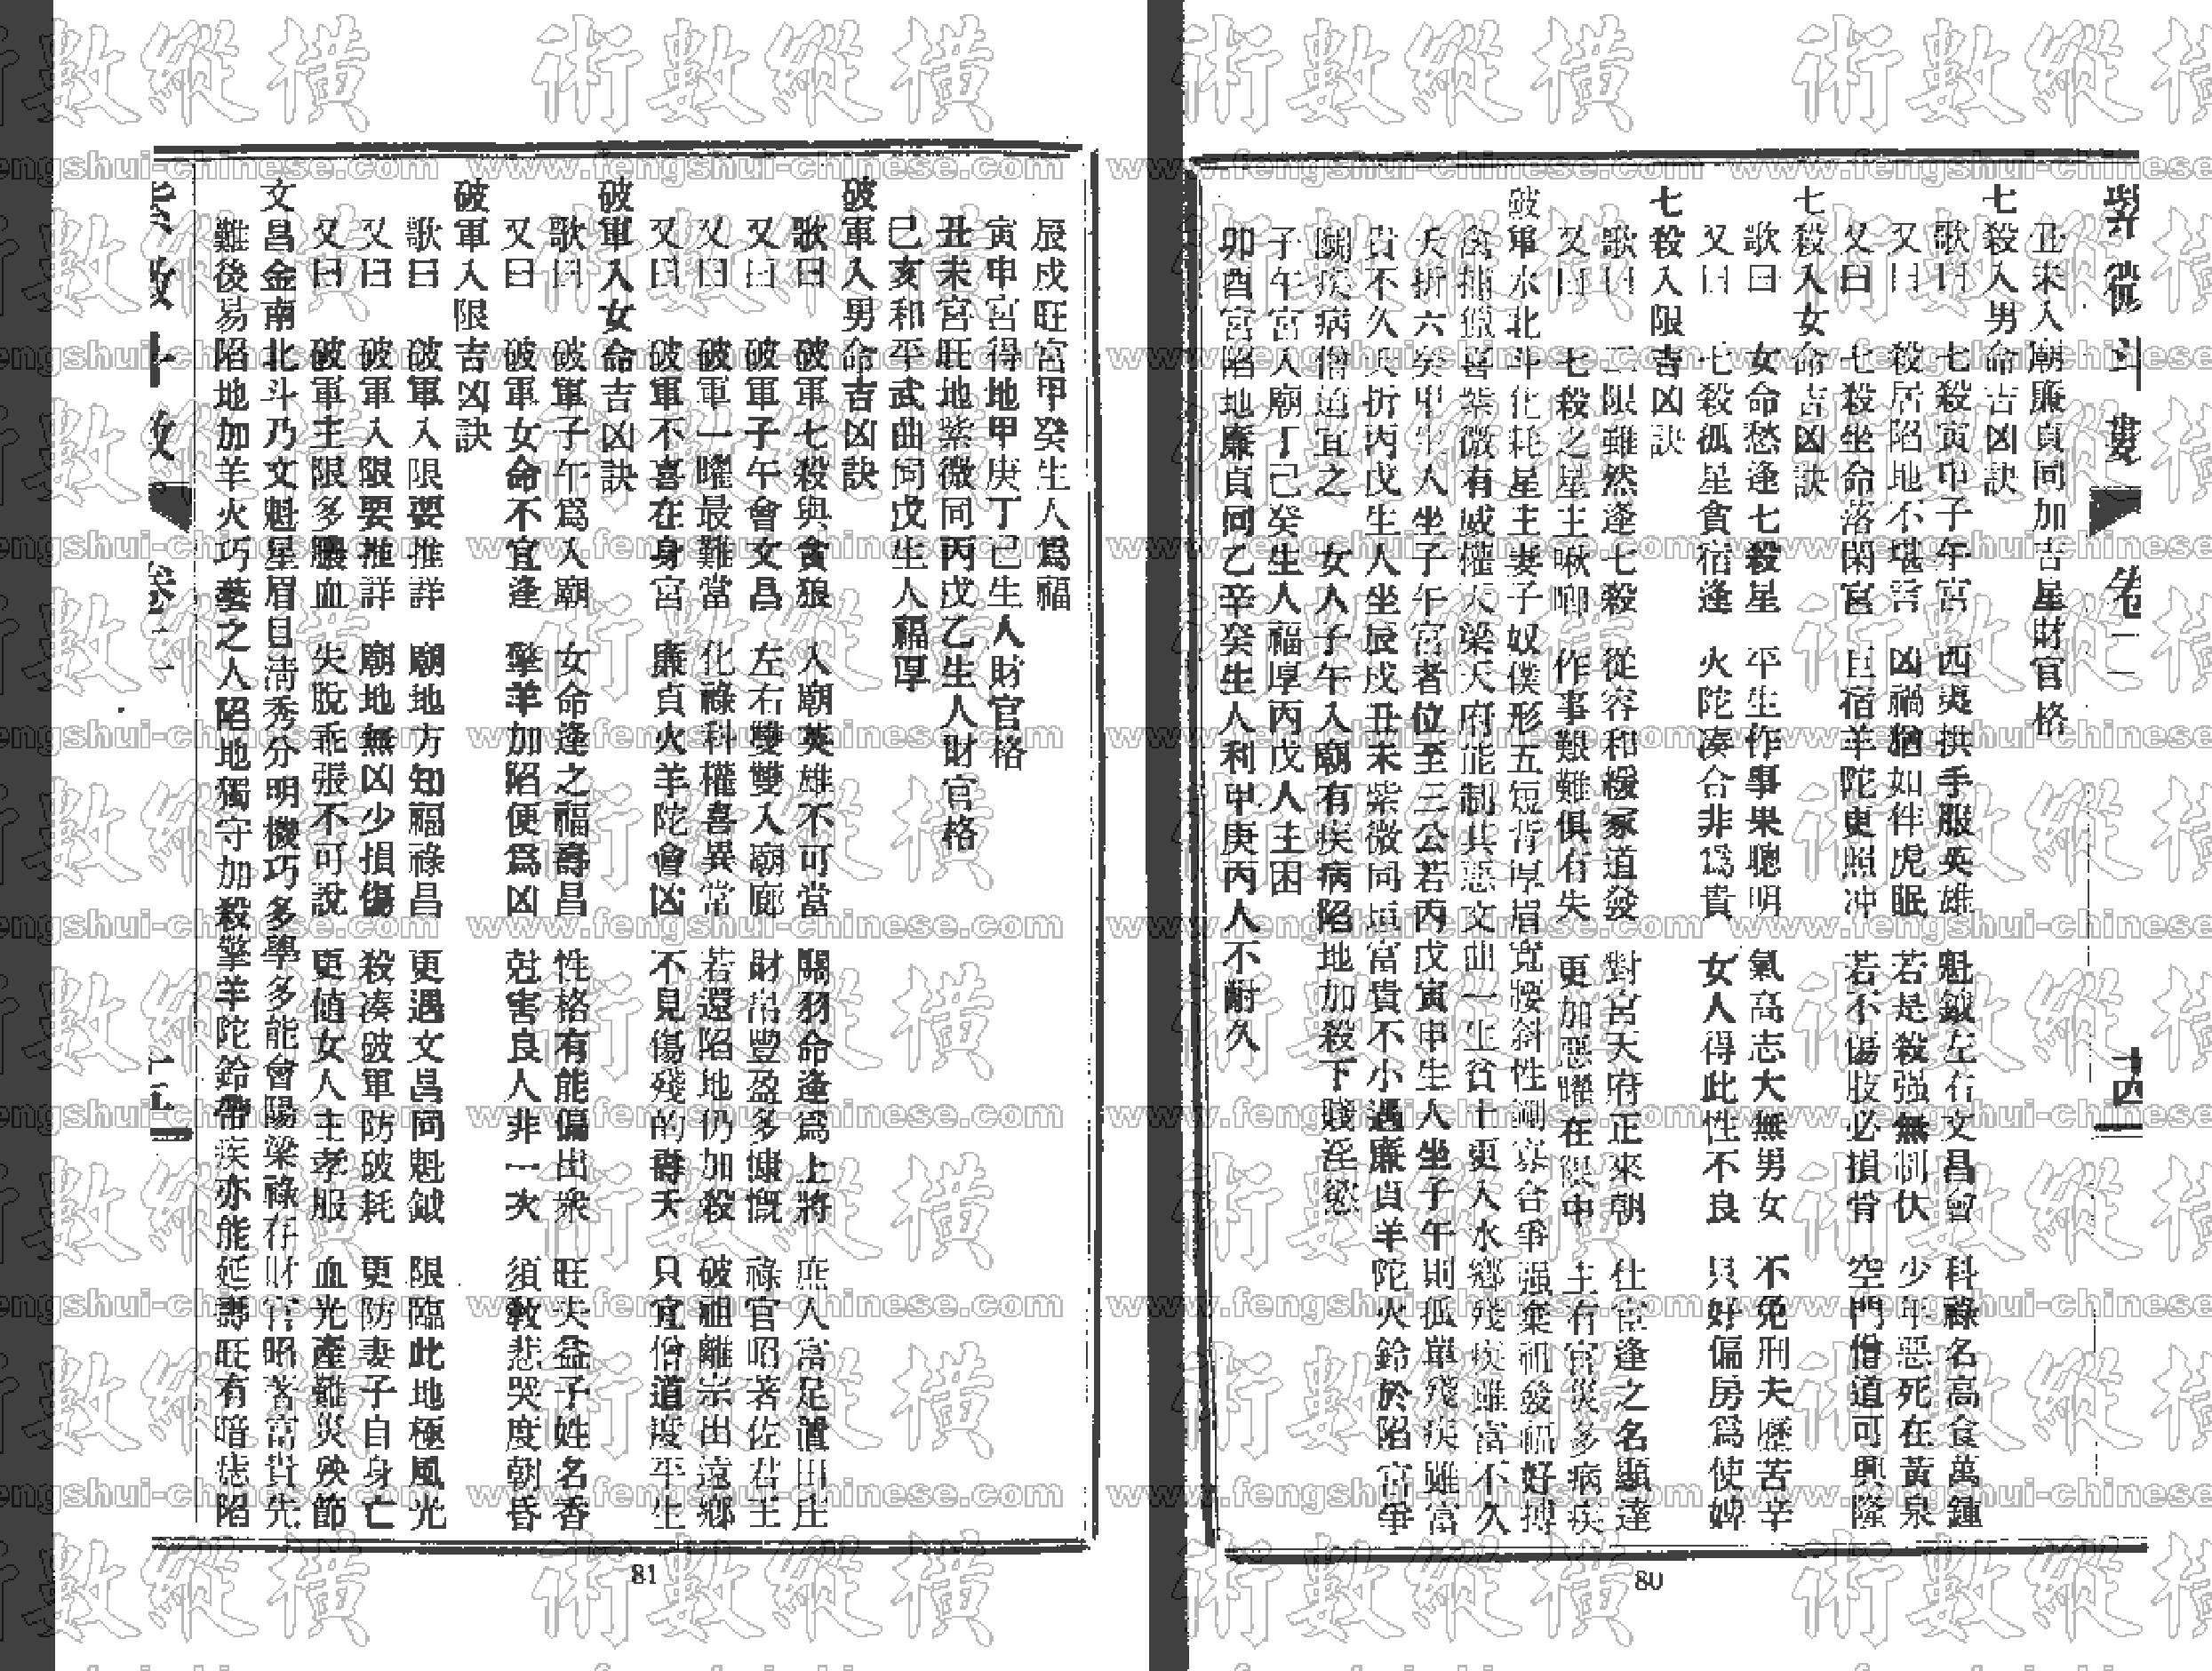 紫微斗數 卷二 十四
丑未入廟廉貞同加吉星財官格
七殺入男命吉凶訣
歌曰 七殺寅申子午宮 西夷拱手服英雄 魁鉞左右文昌會 科祿名高食萬鍾
又曰 殺居陷地不堪言 凶禍猶如伴虎眠 若是殺强無制伏 少年惡死在黃泉
又曰 七殺坐命落閑宮 巨宿羊陀更照冲 若不傷肢必損骨 空門僧道可興隆
七殺入女命吉凶訣
歌曰 女命愁逢七殺星 平生作事果聰明 氣高志大無男女 不免刑夫歷苦辛
又曰 七殺孤星貪宿逢 火陀凑合非爲貴 女人得此性不良 只好偏房爲使婢
七殺入限吉凶訣
歌曰 二限雖然逢七殺 從容和緩家道發 對宮天府正來朝 仕宦逢之名顯達
又曰 七殺之星主啾唧 作事艱難俱有失 更加惡曜在限中 主有官災多病疾
破軍水北斗化耗星主妻子奴僕形五短背厚眉寬腰斜性剛寡合爭强棄祖發福好搏
禽捕獵喜紫微有威權天梁天府能制其惡文曲一生貧士更入水鄉殘疾雖富不久
夭折六癸甲生人坐子午宮者位至三公若丙戊寅申生人坐子午則孤單殘疾雖富
貴不久夭折丙戊生人坐辰戌丑未紫微同垣富貴不小遇廉貞羊陀火鈴於陷宮爭
鬬疾病僧道宜之 女人子午入廟有疾病陷地加殺下賤淫慾
子午宮入廟丁己癸生人福厚丙戊人主困
卯酉宮陷地廉貞同乙辛癸生人利甲庚丙人不耐久
80
辰戌旺宮甲癸生人爲福
寅申宮得地甲庚丁己生人財官格
丑未宮旺地紫微同丙戊乙生人財官格
巳亥和平武曲同戊生人福厚
破軍入男命吉凶訣
歌曰 破軍七殺與貪狼 入廟英雄不可當 關羽命逢爲上將 庶人富足置田庄
又曰 破軍子午會文昌 左右雙雙入廟廊 財帛豐盈多慷慨 祿官昭著佐君王
又曰 破軍一曜最難當 化祿科權喜異常 若還陷地仍加殺 破祖離宗出遠鄉
又曰 破軍不喜在身宮 廉貞火羊陀會凶 不見傷殘的壽夭 只宜僧道度平生
破軍入女命吉凶訣
歌曰 破軍子午爲入廟 女命逢之福壽昌 性格有能偏出衆 旺夫益子姓名香
又曰 破軍女命不宜逢 擎羊加陷便爲凶 尅害良人非一次 須教悲哭度朝昏
破軍入限吉凶訣
歌曰 破軍入限要推詳 廟地方知福祿昌 更遇文昌同魁鉞 限臨此地極風光
又曰 破軍入限要推詳 廟地無凶少損傷 殺凑破軍防破耗 更防妻子自身亡
又曰 破軍主限多膿血 失脫乖張不可說 更值女人主孝服 血光產難災殃節
文昌金南北斗乃文魁星眉目清秀分明機巧多學多能會陽梁祿存財官昭著富貴先
難後易陷地加羊火巧藝之人陷地獨守加殺擎羊陀鈴帶疾亦能延壽旺有暗痣陷
紫微斗數 卷二 十五
81
術數縱橫
www.fengshui-chinese.com